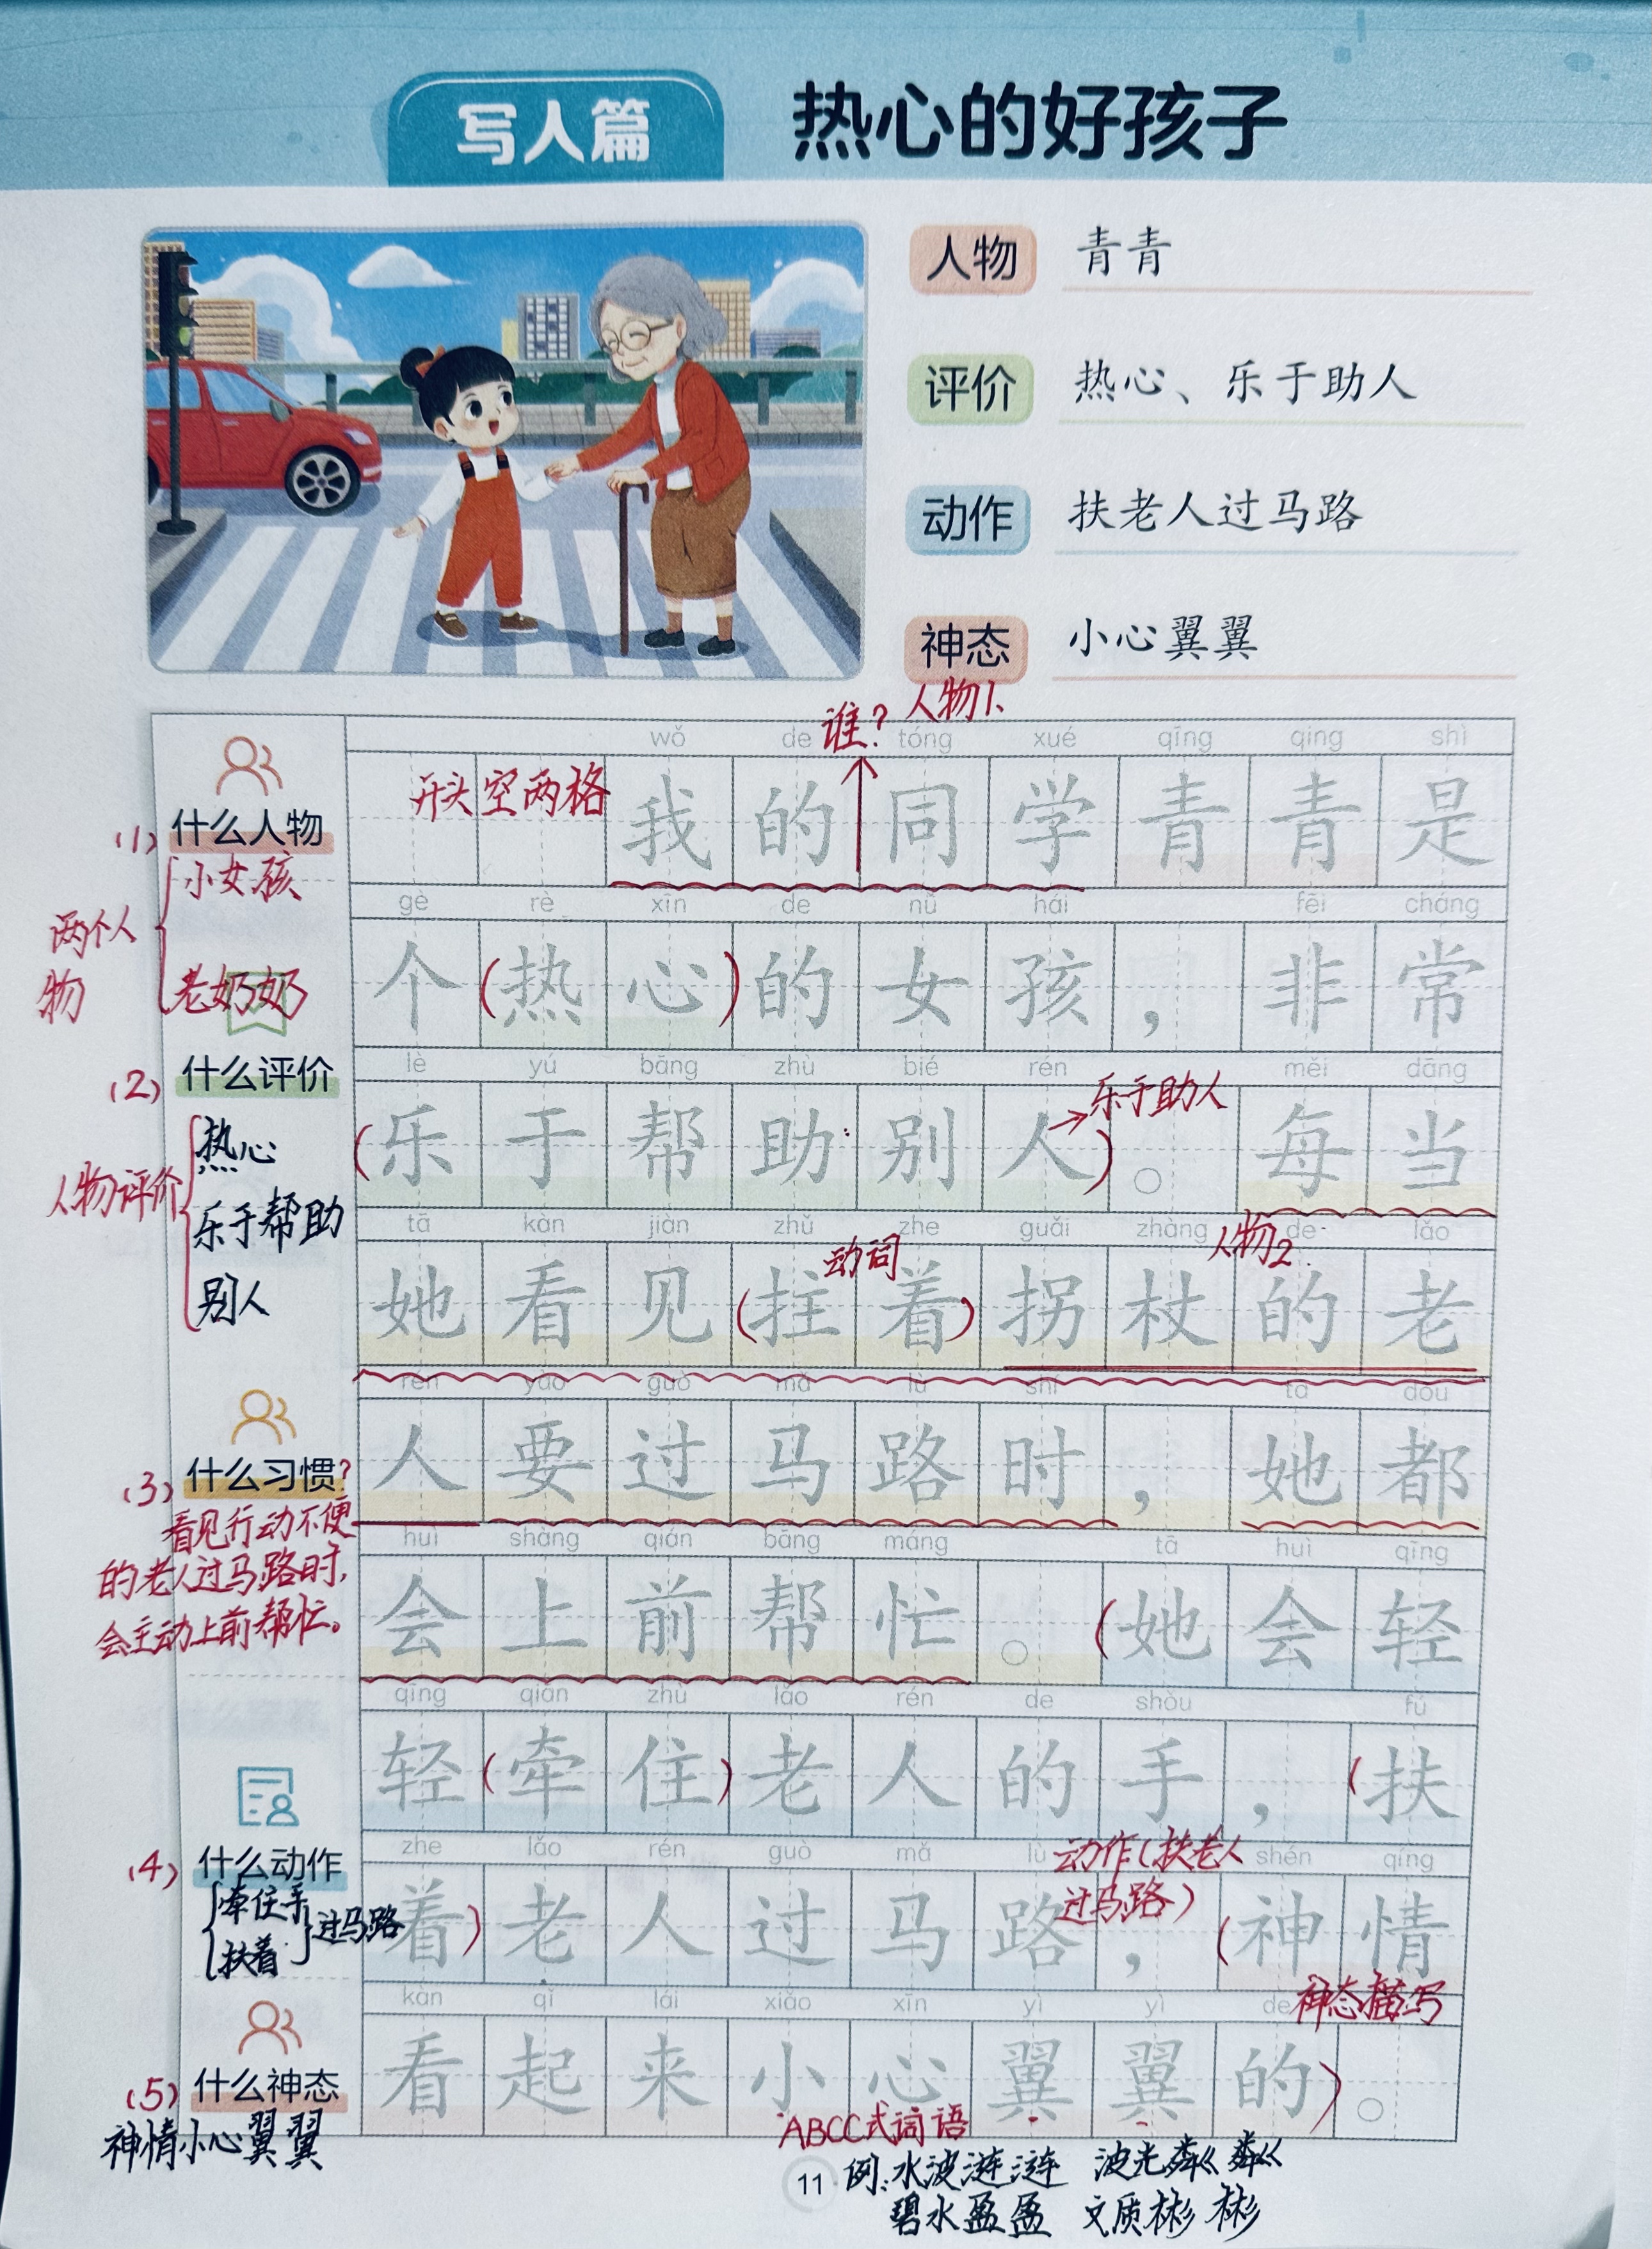 写人篇
热心的好孩子
人物 青青
评价 热心、乐于助人
动作 扶老人过马路
神态 小心翼翼
谁？ 人物1、
wǒ de tóng xué qīng qing shì
开头空两格 我的同学青青是
gè rè xīn de nǚ hái fēi cháng
个(热心)的女孩，非常
lè yú bāng zhù bié rén měi dāng
(乐于帮助别人)。每当
→乐于助人
tā kàn jiàn zhǔ zhe guǎi zhàng de lǎo
动词 人物2
她看见(拄着)拐杖的老
rén yào guò mǎ lù shí tā dōu
人要过马路时，她都
huì shàng qián bāng máng tā huì qīng
会上前帮忙。(她会轻
qīng qiān zhù lǎo rén de shǒu fú
轻(牵住)老人的手，(扶
zhe lǎo rén guò mǎ lù shén qíng
动作(扶老人
过马路)
着)老人过马路，(神情
kàn qǐ lái xiǎo xīn yì yì de
神态描写
看起来小心翼翼的)。
(1) 什么人物
两个人物
小女孩
老奶奶
(2) 什么评价
人物评价
热心
乐于帮助
别人
(3) 什么习惯？
看见行动不便
的老人过马路时，
会主动上前帮忙。
(4) 什么动作
牵住手
扶着
过马路
(5) 什么神态
神情小心翼翼
ABCC式词语
11
例：水波涟涟 波光粼粼
碧水盈盈 文质彬彬